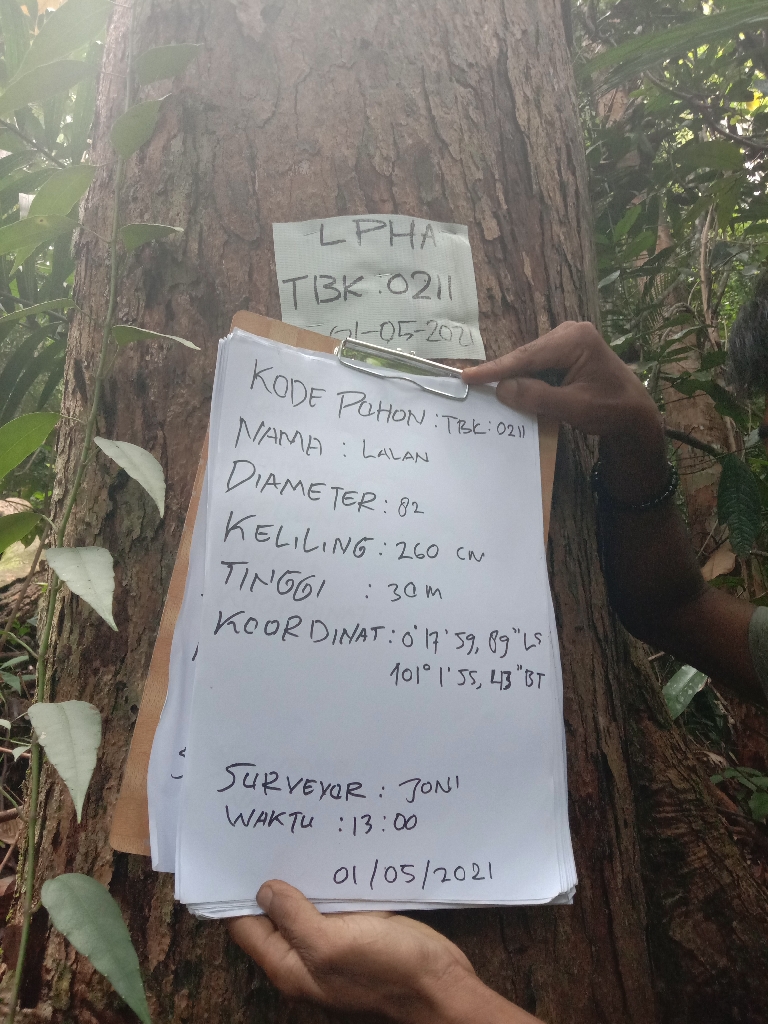 LPHA
TBK:0211
01-05-2021
KODE POHON : TBK:0211
NAMA : LALAN
DIAMETER : 82
KELILING : 260 CM
TINGGI : 30 M
KOORDINAT : 0°17'59,89" LS
101°1'55,43" BT
SURVEYOR : JONI
WAKTU : 13:00
01/05/2021